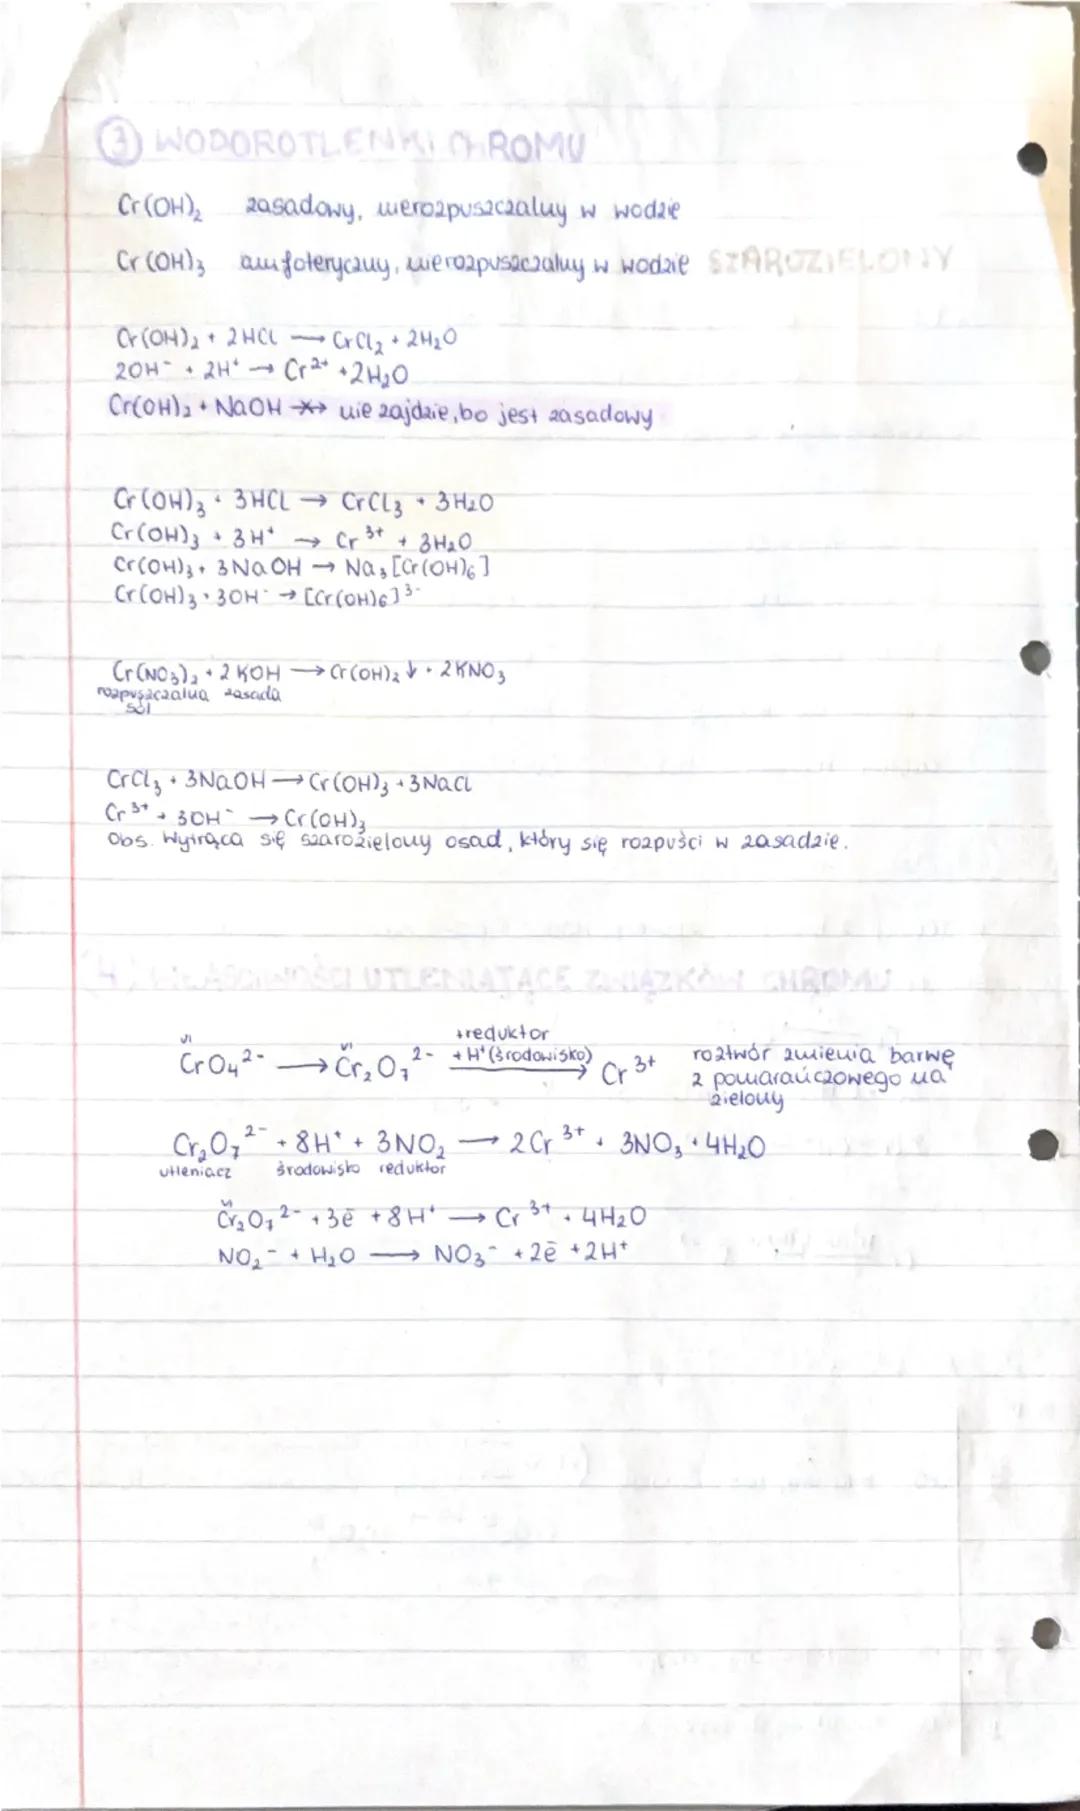 ③ WODOROTLENKI CHROMU
Cr(OH)₂ zasadowy, nierozpuszczalny w wodzie
Cr(OH)₃ amfoteryczny, nierozpuszczalny w wodzie SZAROZIELONY
Cr(OH)₂ + 2HCl ⟶ CrCl₂ + 2H₂O
2OH⁻ + 2H⁺ → Cr²⁺ + 2H₂O
Cr(OH)₂ + NaOH ↛ nie zajdzie, bo jest zasadowy
Cr(OH)₃ + 3HCl → CrCl₃ + 3H₂O
Cr(OH)₃ + 3H⁺ → Cr³⁺ + 3H₂O
Cr(OH)₃ + 3NaOH → Na₃[Cr(OH)₆]
Cr(OH)₃ + 3OH⁻ → [Cr(OH)₆]³⁻
Cr(NO₃)₂ + 2KOH ⟶ Cr(OH)₂↓ + 2KNO₃
rozpuszczalna zasada
sól
CrCl₃ + 3NaOH ⟶ Cr(OH)₃ + 3NaCl
Cr³⁺ + 3OH⁻ ⟶ Cr(OH)₃
Obs. Wytrąca się szarozielony osad, który się rozpuści w zasadzie.
④ WŁAŚCIWOŚCI UTLENIAJĄCE ZWIĄZKÓW CHROMU
+reduktor
VI VI
CrO₄²⁻ ⟶ Cr₂O₇²⁻ + H⁺(środowisko) ⟶ Cr³⁺ roztwór zmienia barwę
z pomarańczowego na
zielony
Cr₂O₇²⁻ + 8H⁺ + 3NO₂ ⟶ 2Cr³⁺ + 3NO₃ + 4H₂O
utleniacz środowisko reduktor
VI
Cr₂O₇²⁻ + 3ē + 8H⁺ ⟶ Cr³⁺ + 4H₂O
NO₂⁻ + H₂O ⟶ NO₃⁻ + 2ē + 2H⁺